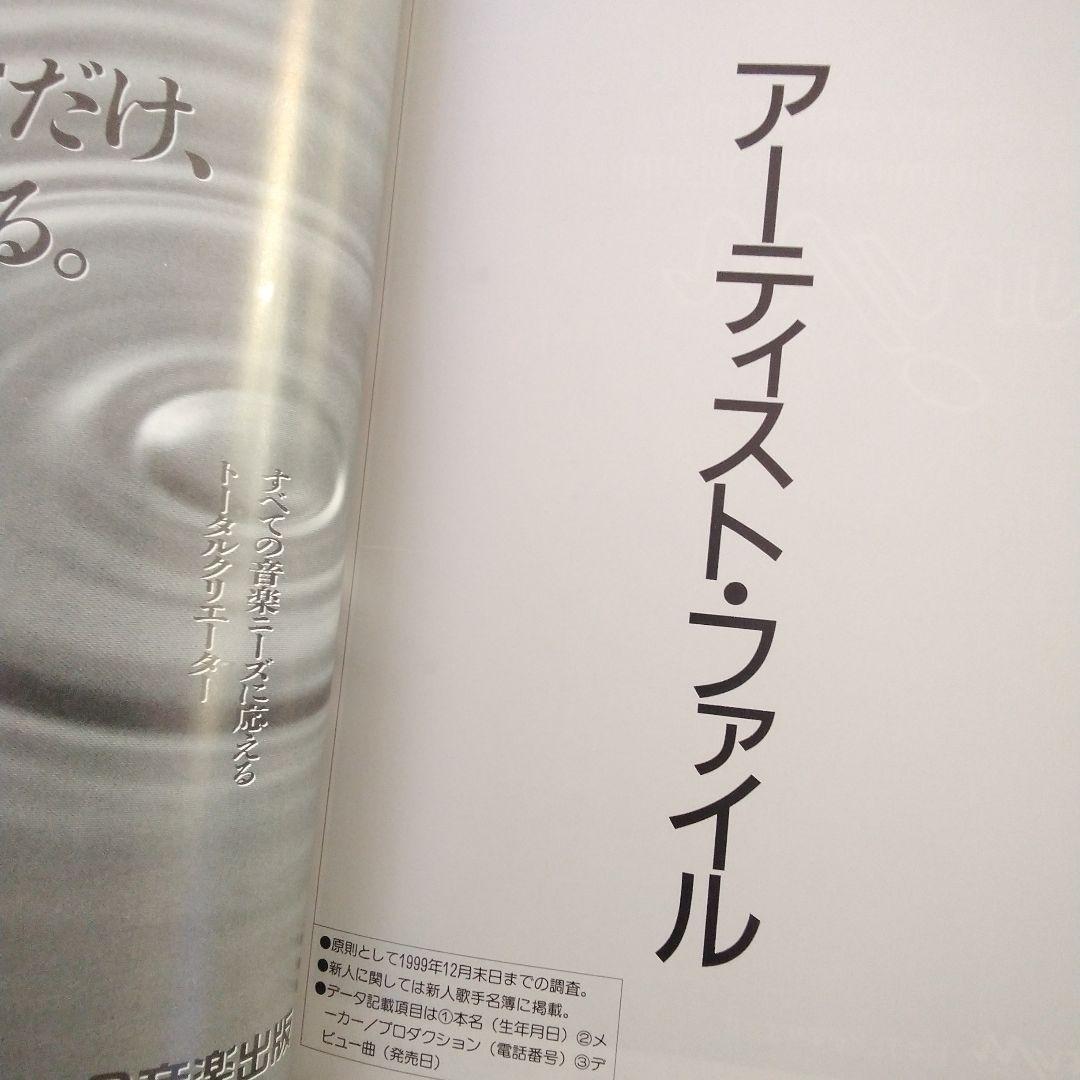 だけ、
る。
すべての音楽ニーズに応える
トータルクリエーター
音楽出版
アーティスト・ファイル
●原則として1999年12月末日までの調査。
●新人に関しては新人歌手名簿に掲載。
●データ記載項目は①本名（生年月日）②メ
ーカー／プロダクション（電話番号）③デ
ビュー曲（発売日）